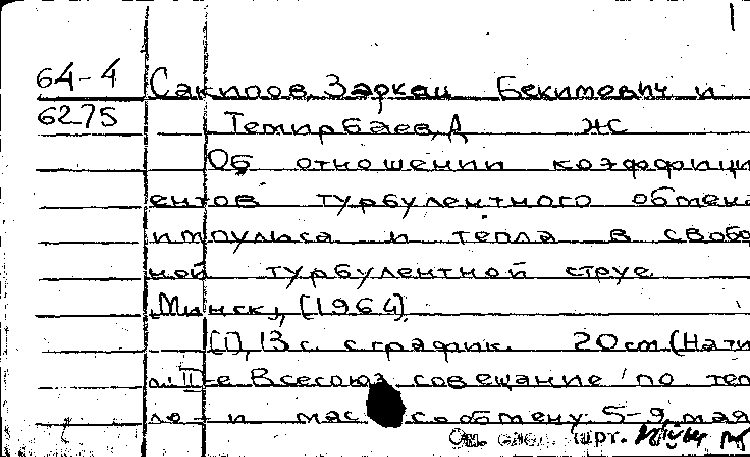 64-4 Сакипов, Заркаш Бекишевич и
6275 Темирбаев, Д Ж
Об отношении коэффици
ентов турбулентного обмена
импульса и тепла в свобо
ной турбулентной струе
Минск, [1964]
[1], 13 с. с график. 20 см. (На ти
л. II-е Всесоюз совещание по теп
ло- и мас сообмену 5-9, мая
См. след.